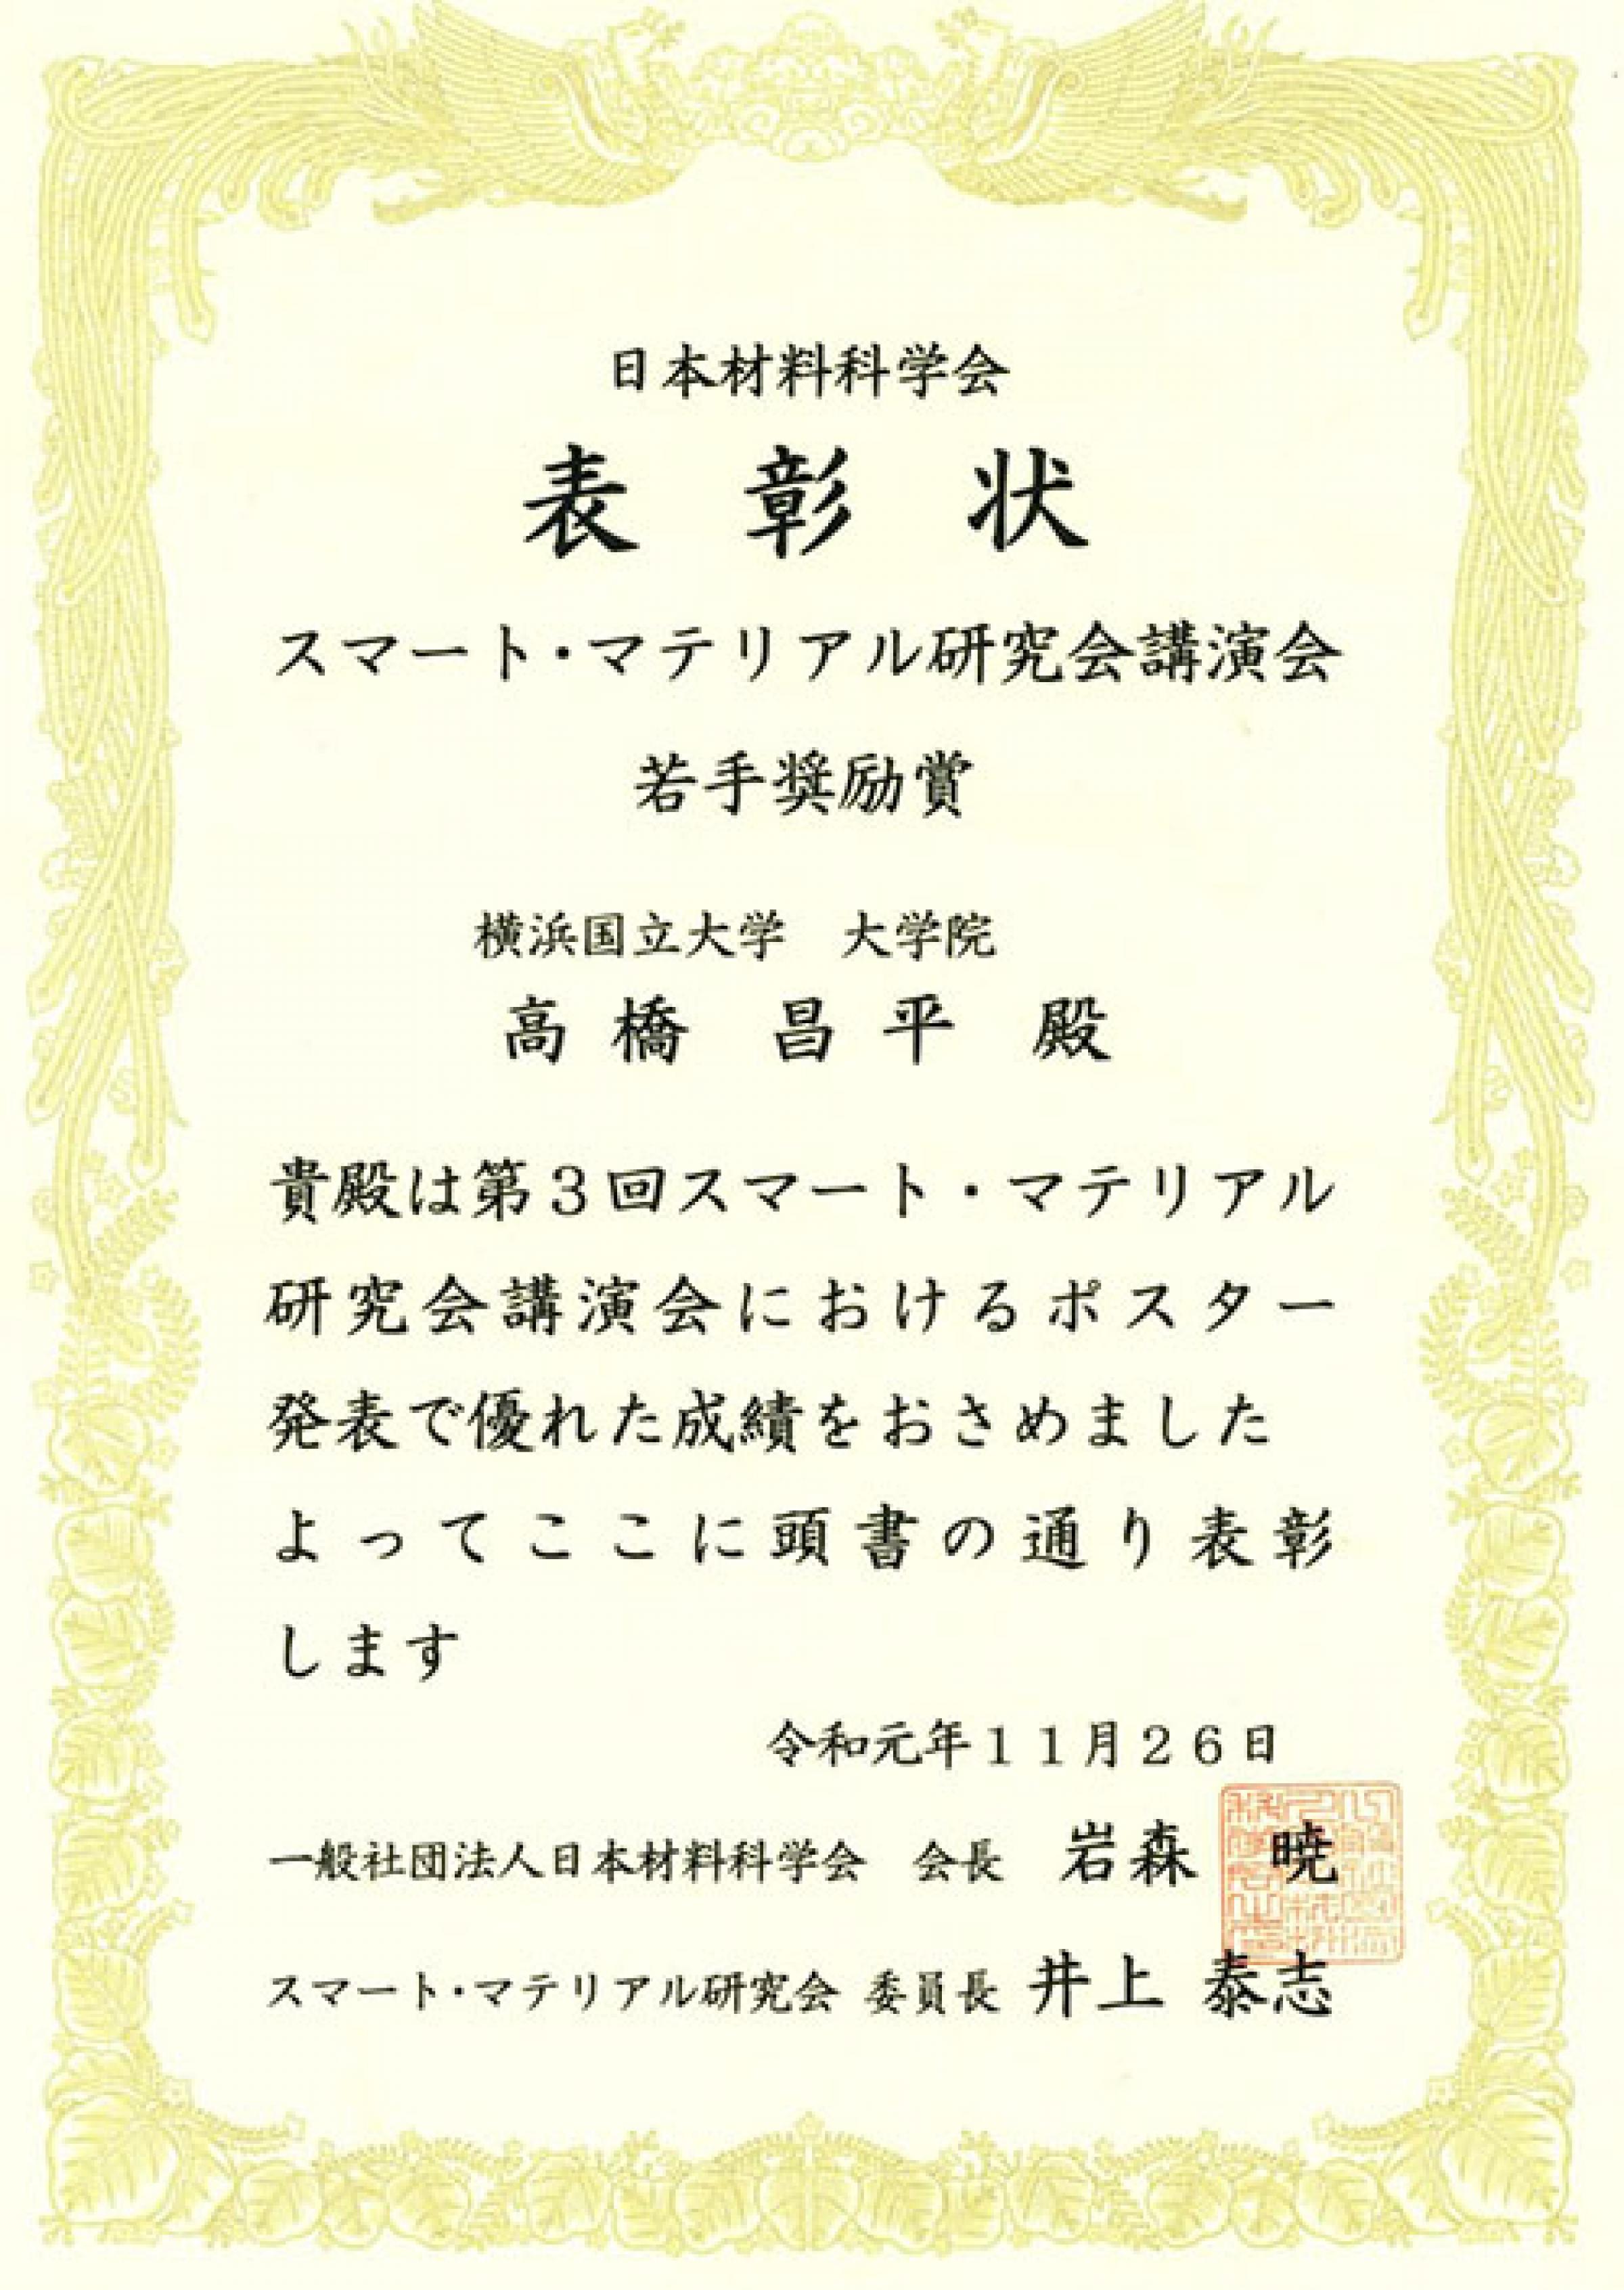 日本材料科学会
表 彰 状
スマート・マテリアル研究会講演会
若手奨励賞
横浜国立大学　大学院
高橋　昌平　殿
貴殿は第３回スマート・マテリアル
研究会講演会におけるポスター
発表で優れた成績をおさめました
よってここに頭書の通り表彰
します
令和元年１１月２６日
一般社団法人日本材料科学会　会長　岩森　暁
スマート・マテリアル研究会 委員長 井上 泰志